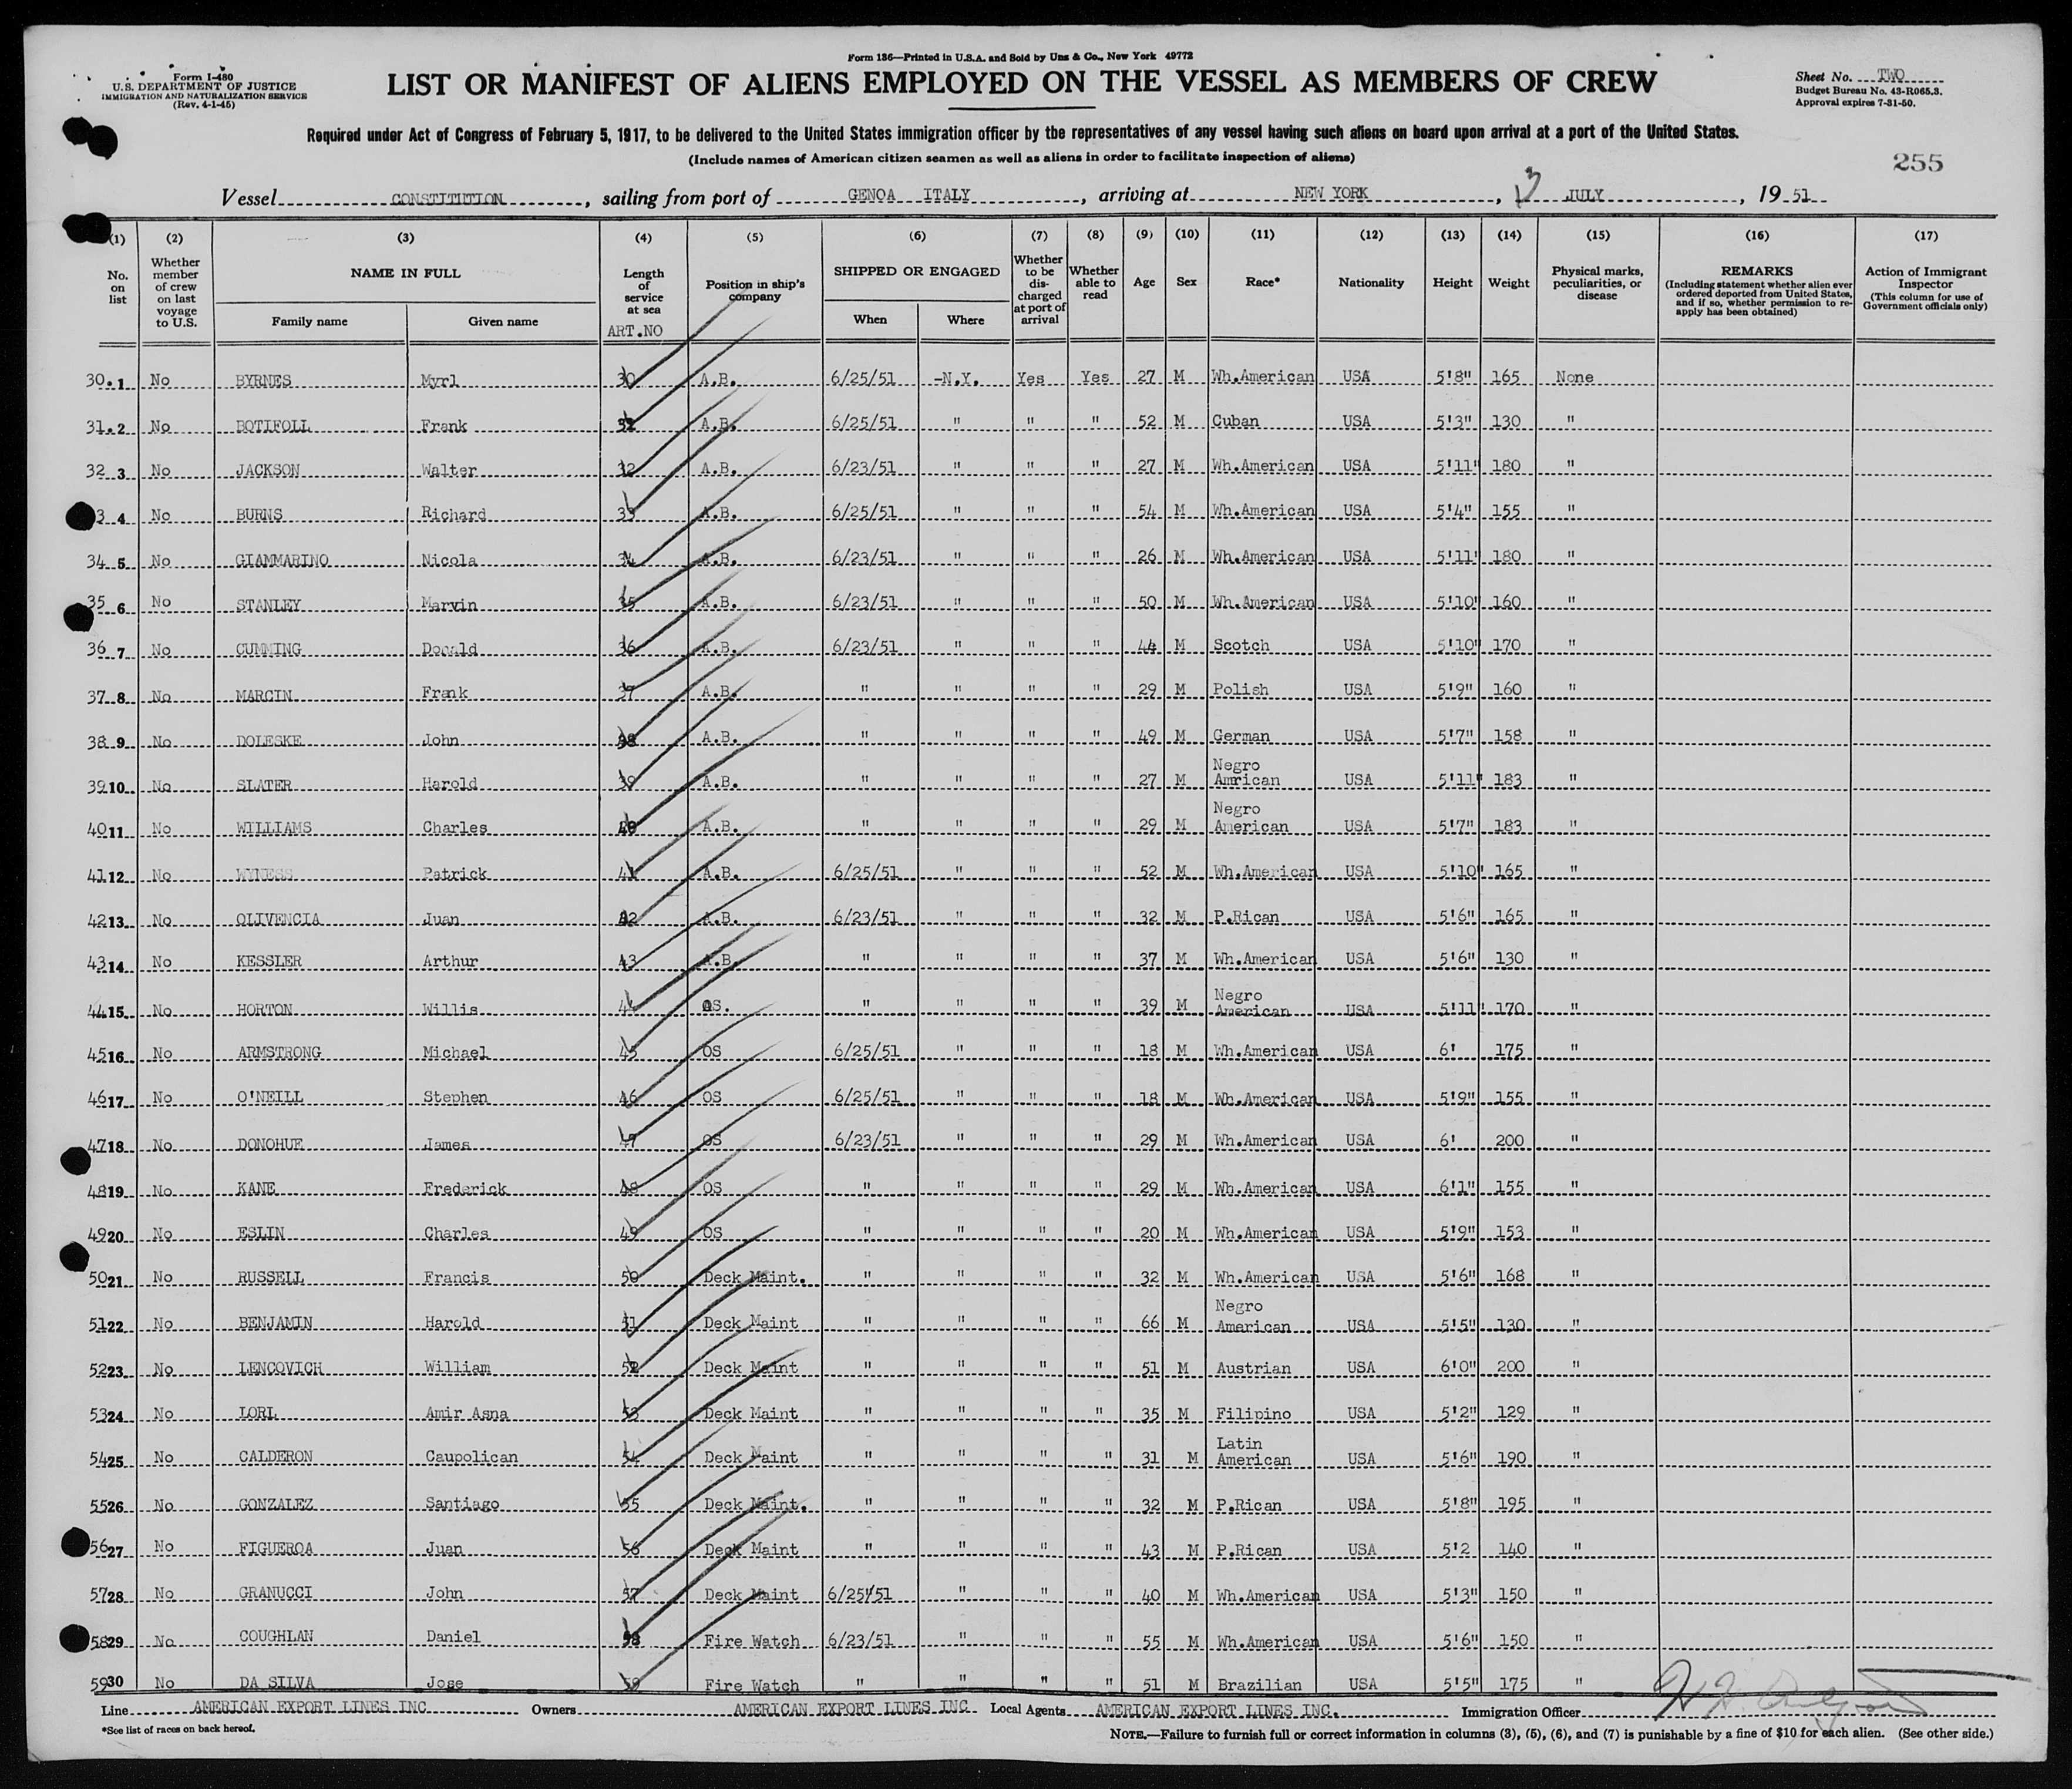 Form 136—Printed in U.S.A. and Sold by Unz & Co., New York 49772
Form I-480
U.S. DEPARTMENT OF JUSTICE
IMMIGRATION AND NATURALIZATION SERVICE
(Rev. 4-1-45)
LIST OR MANIFEST OF ALIENS EMPLOYED ON THE VESSEL AS MEMBERS OF CREW
Sheet No. TWO
Budget Bureau No. 43-R065.3.
Approval expires 7-31-50.
Required under Act of Congress of February 5, 1917, to be delivered to the United States immigration officer by the representatives of any vessel having such aliens on board upon arrival at a port of the United States.
(Include names of American citizen seamen as well as aliens in order to facilitate inspection of aliens)
255
Vessel CONSTITUTION, sailing from port of GENOA ITALY, arriving at NEW YORK, 3 JULY, 19 51
(1) (2) (3) (4) (5) (6) (7) (8) (9) (10) (11) (12) (13) (14) (15) (16) (17)
No. on list
Whether member of crew on last voyage to U.S.
NAME IN FULL
Family name
Given name
Length of service at sea
ART.NO
Position in ship's company
SHIPPED OR ENGAGED
When
Where
Whether to be discharged at port of arrival
Whether able to read
Age
Sex
Race*
Nationality
Height
Weight
Physical marks, peculiarities, or disease
REMARKS
(Including statement whether alien ever ordered deported from United States, and if so, whether permission to reapply has been obtained)
Action of Immigrant Inspector
(This column for use of Government officials only)
30 1 No BYRNES Myrl 30 A.B. 6/25/51 -N.Y. Yes Yes 27 M Wh.American USA 5'8" 165 None
31 2 No BOTIFOLL Frank A.B. 6/25/51 " " " 52 M Cuban USA 5'3" 130 "
32 3 No JACKSON Walter 32 A.B. 6/23/51 " " " 27 M Wh.American USA 5'11" 180 "
3 4 No BURNS Richard 33 A.B. 6/25/51 " " " 54 M Wh.American USA 5'4" 155 "
34 5 No GIAMMARINO Nicola 34 A.B. 6/23/51 " " " 26 M Wh.American USA 5'11' 180 "
35 6 No STANLEY Marvin 35 A.B. 6/23/51 " " " 50 M Wh.American USA 5'10" 160 "
36 7 No CUMMING Donald 36 A.B. 6/23/51 " " " 44 M Scotch USA 5'10" 170 "
37 8 No MARCIN Frank 37 A.B. " " " " 29 M Polish USA 5'9" 160 "
38 9 No DOLESKE John 38 A.B. " " " " 49 M German USA 5'7" 158 "
39 10 No SLATER Harold 39 A.B. " " " " 27 M Negro Amrican USA 5'11" 183 "
40 11 No WILLIAMS Charles 40 A.B. " " " " 29 M Negro American USA 5'7" 183 "
41 12 No WYNESS Patrick 41 A.B. 6/25/51 " " " 52 M Wh.American USA 5'10" 165 "
42 13 No OLIVENCIA Juan 42 A.B. 6/23/51 " " " 32 M P.Rican USA 5'6" 165 "
43 14 No KESSLER Arthur 43 A.B. " " " " 37 M Wh.American USA 5'6" 130 "
44 15 No HORTON Willis 44 OS. " " " " 39 M Negro American USA 5'11" 170 "
45 16 No ARMSTRONG Michael 45 OS 6/25/51 " " " 18 M Wh.American USA 6' 175 "
46 17 No O'NEILL Stephen 46 OS 6/25/51 " " " 18 M Wh.American USA 5'9" 155 "
47 18 No DONOHUE James 47 OS 6/23/51 " " " 29 M Wh.American USA 6' 200 "
48 19 No KANE Frederick 48 OS " " " " 29 M Wh.American USA 6'1" 155 "
49 20 No ESLIN Charles 49 OS " " " " 20 M Wh.American USA 5'9" 153 "
50 21 No RUSSELL Francis 50 Deck Maint. " " " " 32 M Wh.American USA 5'6" 168 "
51 22 No BENJAMIN Harold 51 Deck Maint " " " " 66 M Negro American USA 5'5" 130 "
52 23 No LENCOVICH William 52 Deck Maint " " " " 51 M Austrian USA 6'0" 200 "
53 24 No LORL Amir Asna 53 Deck Maint " " " " 35 M Filipino USA 5'2" 129 "
54 25 No CALDERON Caupolican 54 Deck Maint " " " " 31 M Latin American USA 5'6" 190 "
55 26 No GONZALEZ Santiago 55 Deck Maint. " " " " 32 M P.Rican USA 5'8" 195 "
56 27 No FIGUEROA Juan 56 Deck Maint " " " " 43 M P.Rican USA 5'2 140 "
57 28 No GRANUCCI John 57 Deck Maint 6/25/51 " " " 40 M Wh.American USA 5'3" 150 "
58 29 No COUGHLAN Daniel 58 Fire Watch 6/23/51 " " " 55 M Wh.American USA 5'6" 150 "
59 30 No DA SILVA Jose 59 Fire Watch " " " " 51 M Brazilian USA 5'5" 175 "
Line AMERICAN EXPORT LINES INC Owners AMERICAN EXPORT LINES INC Local Agents AMERICAN EXPORT LINES INC. Immigration Officer
*See list of races on back hereof.
NOTE.—Failure to furnish full or correct information in columns (3), (5), (6), and (7) is punishable by a fine of $10 for each alien. (See other side.)